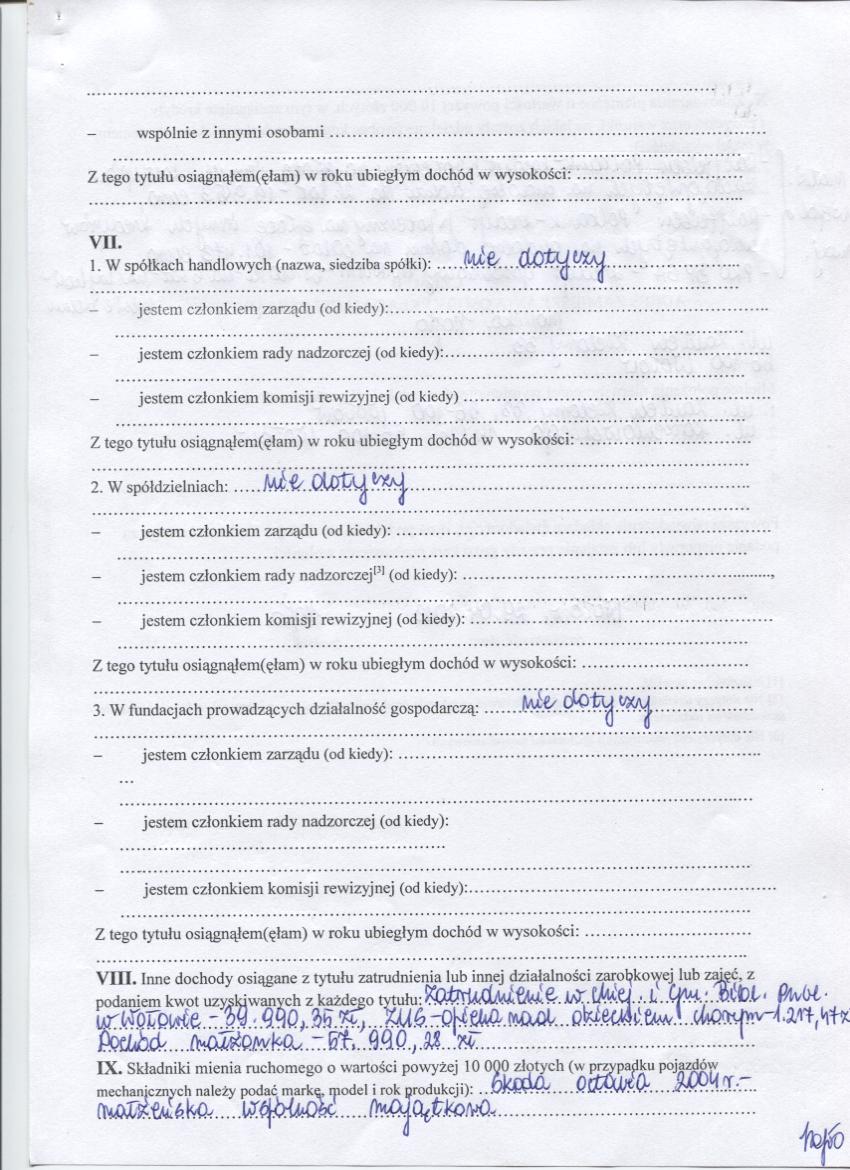 – wspólnie z innymi osobami
Z tego tytułu osiągnąłem(ęłam) w roku ubiegłym dochód w wysokości:
VII.
1. W spółkach handlowych (nazwa, siedziba spółki): nie dotyczy
– jestem członkiem zarządu (od kiedy):
– jestem członkiem rady nadzorczej (od kiedy):
– jestem członkiem komisji rewizyjnej (od kiedy)
Z tego tytułu osiągnąłem(ęłam) w roku ubiegłym dochód w wysokości:
2. W spółdzielniach: nie dotyczy
– jestem członkiem zarządu (od kiedy):
– jestem członkiem rady nadzorczej[3] (od kiedy):
– jestem członkiem komisji rewizyjnej (od kiedy):
Z tego tytułu osiągnąłem(ęłam) w roku ubiegłym dochód w wysokości:
3. W fundacjach prowadzących działalność gospodarczą: nie dotyczy
– jestem członkiem zarządu (od kiedy):
…
– jestem członkiem rady nadzorczej (od kiedy):
– jestem członkiem komisji rewizyjnej (od kiedy):
Z tego tytułu osiągnąłem(ęłam) w roku ubiegłym dochód w wysokości:
VIII. Inne dochody osiągane z tytułu zatrudnienia lub innej działalności zarobkowej lub zajęć, z
podaniem kwot uzyskiwanych z każdego tytułu: Zatrudnienie w Miej. i Gm. Bibl. Publ.
w Wołowie – 39.990,35 zł, ZUS – opieka nad dzieckiem chorym – 1.217,47 z
Dochód małżonka – 57.990,28 zł
IX. Składniki mienia ruchomego o wartości powyżej 10 000 złotych (w przypadku pojazdów
mechanicznych należy podać markę, model i rok produkcji): Skoda octavia 2004 r. –
małżeńska wspólność majątkowa